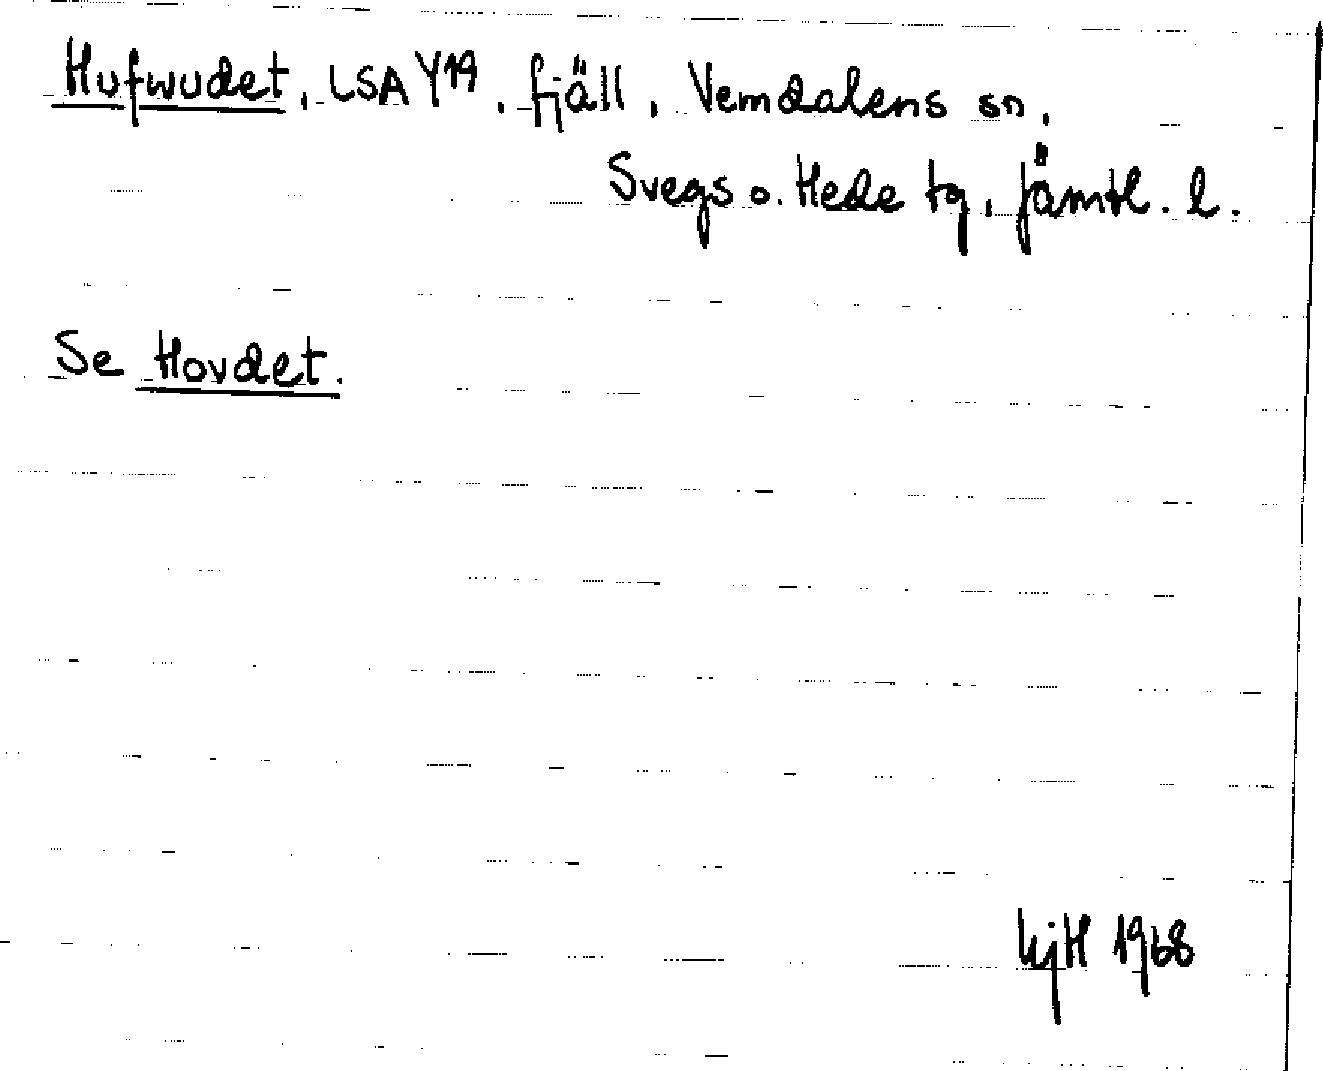 Hufwudet, LSA Y19, fjäll, Vemdalens sn,
Svegs o. Hede tg, Jämtl. l.
Se Hovdet.
HjH 1968